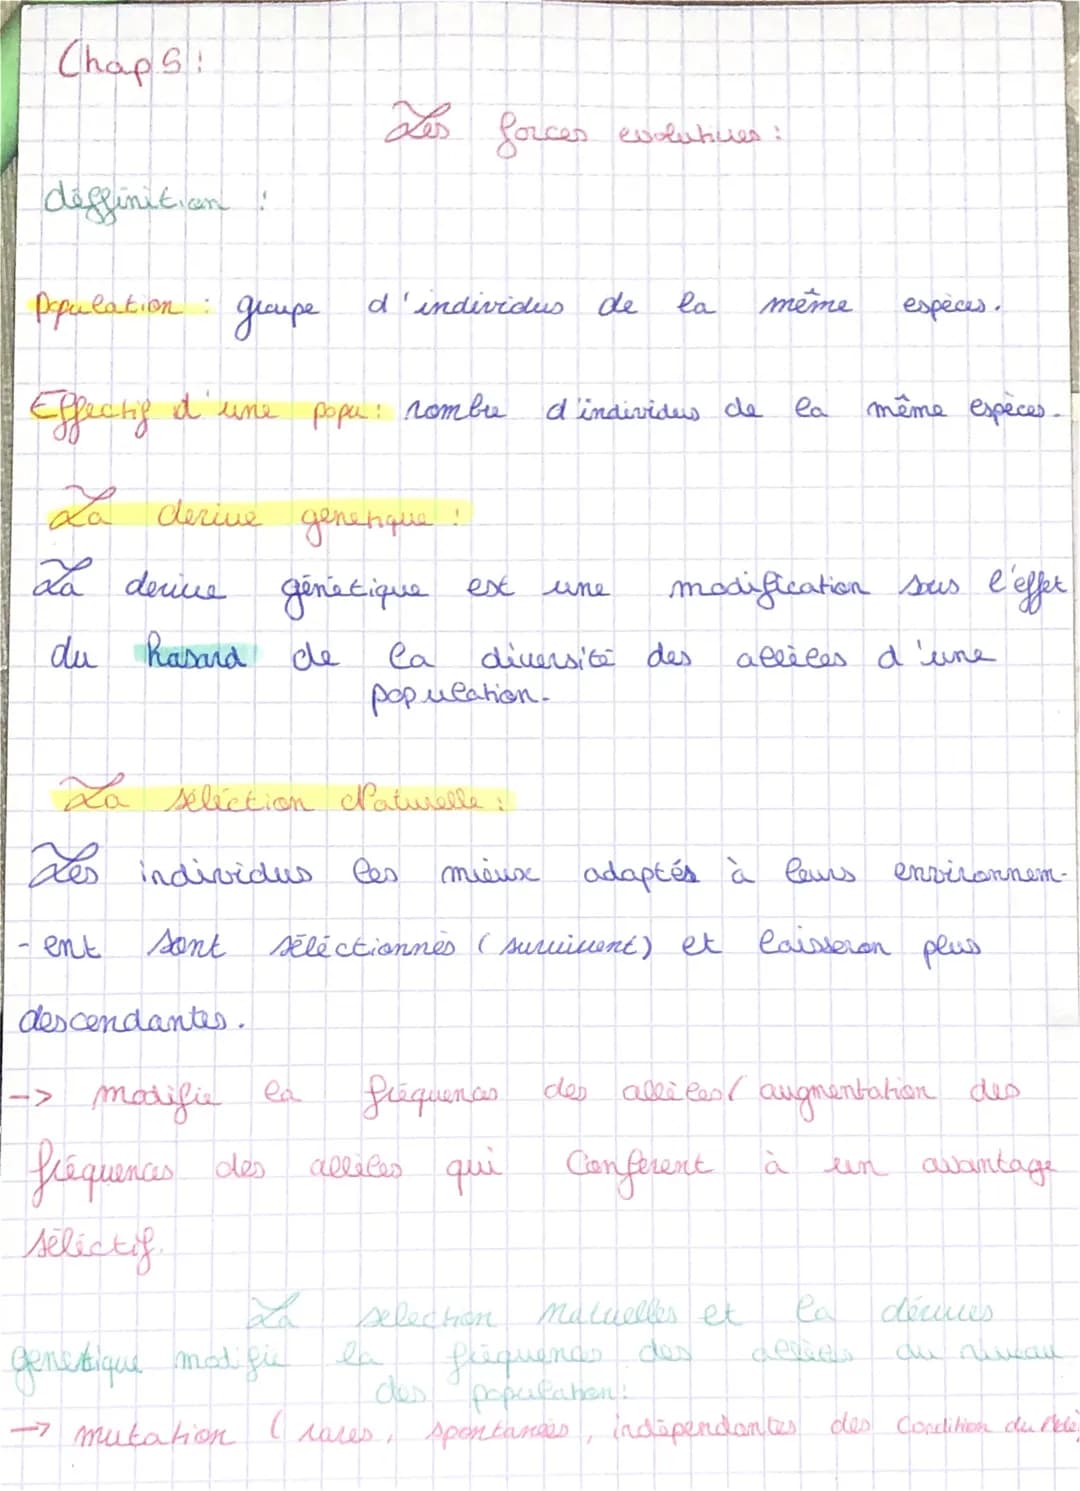 Chap 5 :
Les forces evolutives :
déffinition :
Population : groupe d'individus de la même espèces.
Effectif d'une popu : nombre d'individus de la même espèces.
La derive genetique :
La derive génétique est une modification sous l'effet
du hasard de la diversité des allèles d'une
population.
La séléction Naturelle :
Les individus les mieux adaptés à leurs environnem-
- ent sont séléctionnés (survivent) et laisseron plus
descendantes.
-> modifie la fréquences des allèles / augmentation des
fréquences des allèles qui Conferent à un avantage
séléctif.
La selection naturelles et la dérives
genetique modifie la fréquences des allèles au niveau
des population :
-> mutation ( rares, spontanées, indépendantes des Condition du